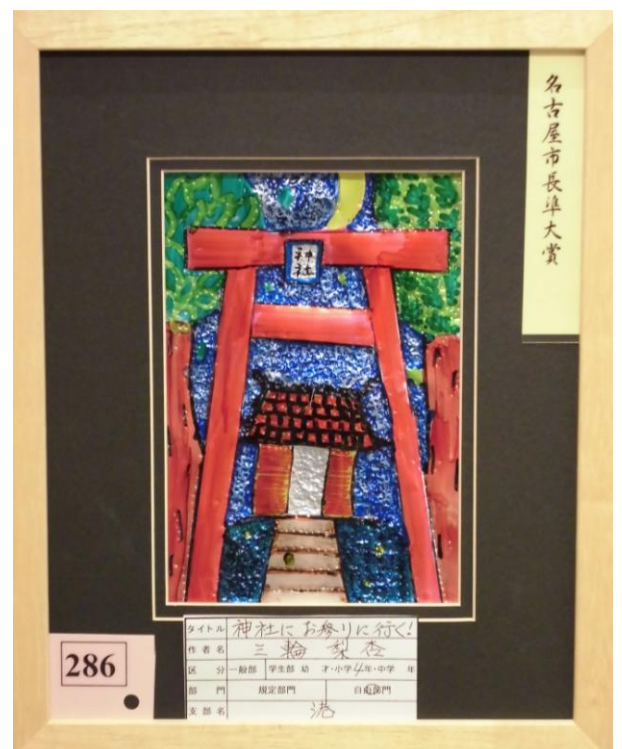 名古屋市長準大賞
神社
タイトル 神社にお参りに行く!
作者名 三輪 梨杏
区分 一般部 学生部 幼 才・小学4年・中学 年
部門 規定部門 自由部門
支部名 港
286